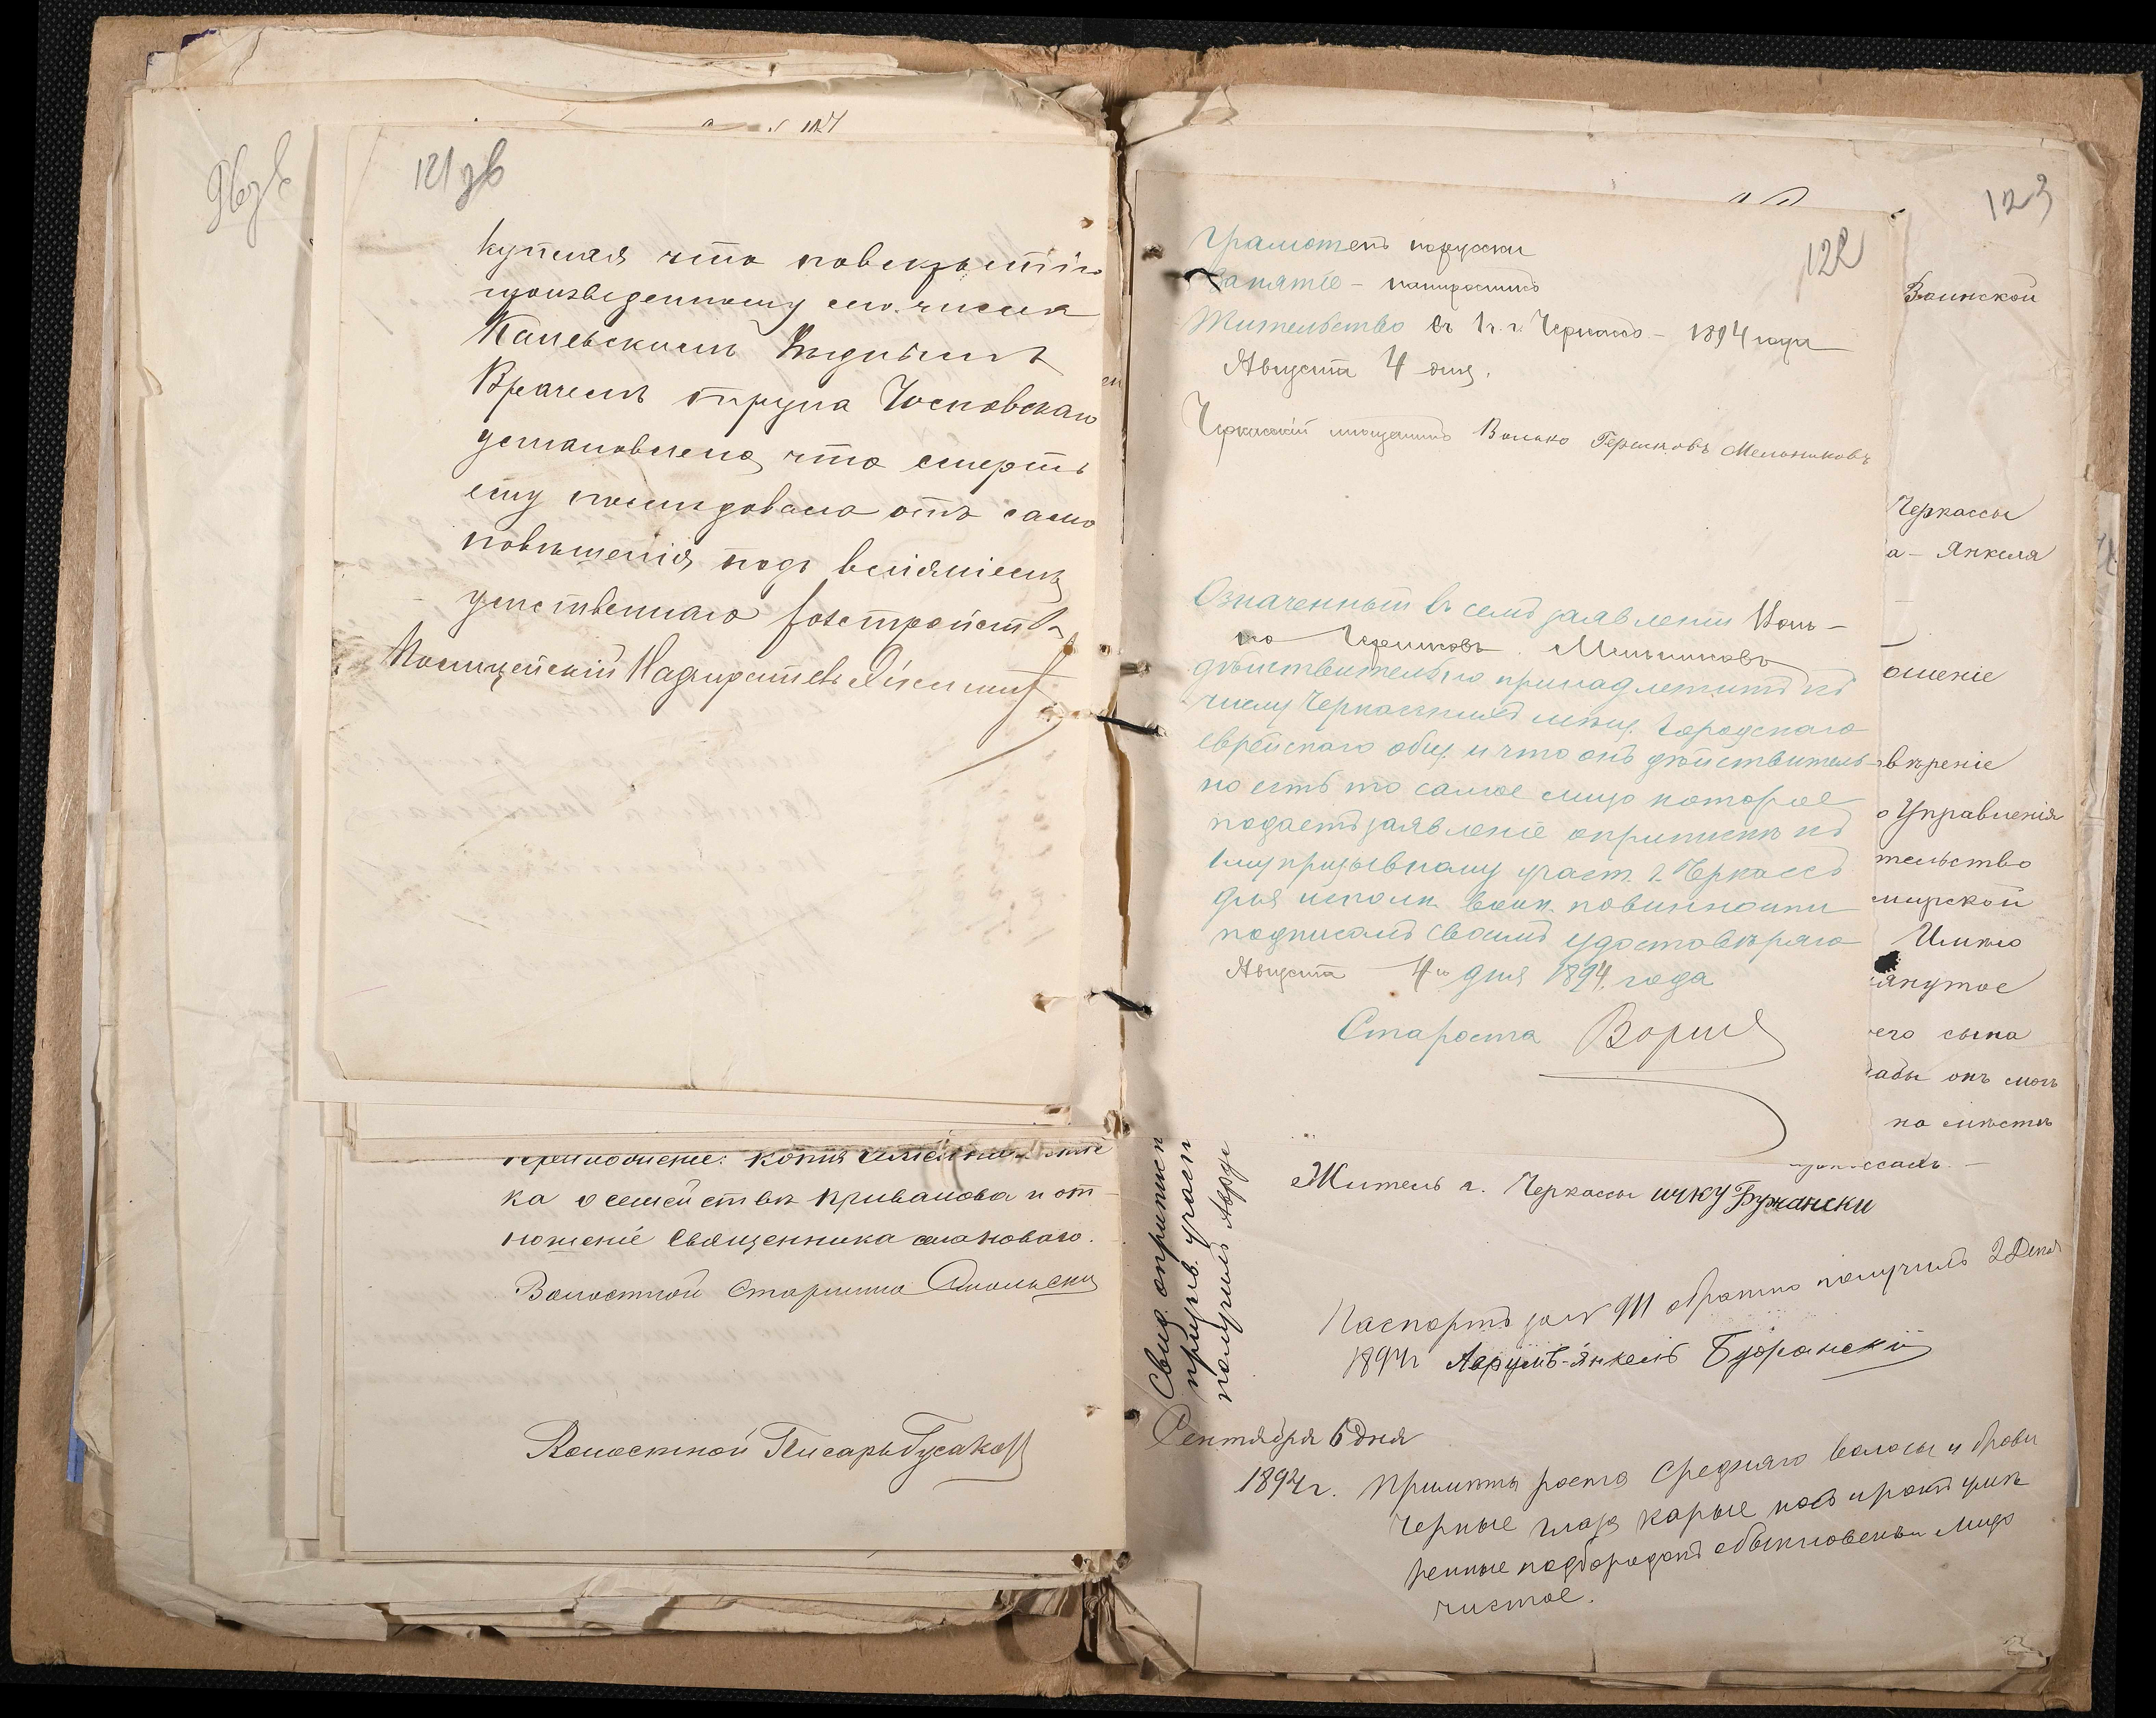 96 зв
121 зв
купная что по вскрытiи
произведенному сего числа
Каневскимъ Уѣзднымъ
Врачемъ трупа
установлено что смерть
ему последовала отъ само
повѣшенiя подъ влiянiемъ
умственнаго розстройства
Полицейскiй Надзиратель
Приложенiе: копiя
ка о семействѣ Кривалова и от
ношенiе священника
Волостной Старшина
Волостной Писарь Гусаков
122
Грамотенъ порусски
Занятiе - папиросникъ
Жительство въ 1 ч. г. Черкассъ - 1894 года
Августа 4 дня.
Черкасскiй мещанинъ Волько Гершковъ Мельниковъ
Означенный въ семъ заявленiи Воль-
ко Гершковъ Мельниковъ
дѣйствительно принадлежитъ къ
числу Черкасскихъ мѣщ. городскаго
еврейскаго общ. и что онъ дѣйствитель-
но есть то самое лицо которое
подаетъ заявленiе о припискѣ къ
1му призывному участ. г. Черкассъ
для исполн. воин. повинности
подписомъ своимъ удостовѣряю
Августа 4го дня 1894 года
Староста
123
Воинской
Черкассы
а - Янкеля
ошенiе
вѣренiе
о Управленiя
тельство
мирской
Имѣю
янутое
его сына
дабы онъ могъ
на мѣстѣ
Житель г. Черкассы ицку Бужански
Паспортъ за № 911 обратно получилъ 2 Декаб
1894 г Аврумъ-Янкель Бужанский
Свид. о приписк
призыв. участ
получилъ
Сентября 6 дня
1894 г. Примѣты роста Средняго волосы и брови
черные глаза карые носъ и ротъ умѣ
ренные подбородокъ обыкновенъ лицо
чистое.